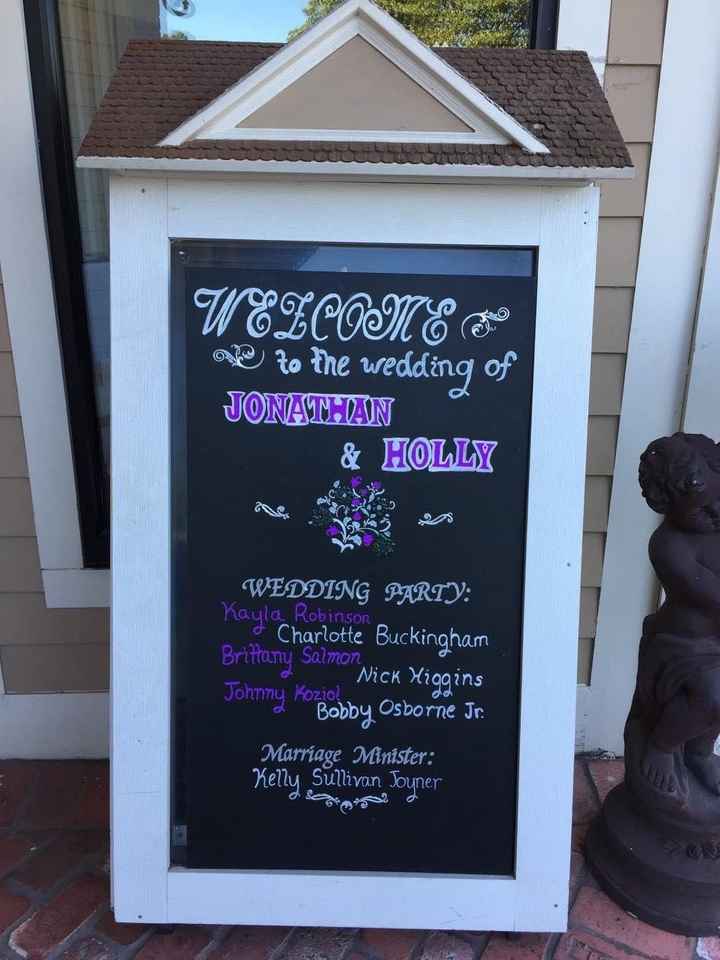 WELCOME
to the wedding of
JONATHAN
& HOLLY
WEDDING PARTY:
Kayla Robinson
Charlotte Buckingham
Brittany Salmon
Nick Higgins
Johnny Koziol
Bobby Osborne Jr.
Marriage Minister:
Kelly Sullivan Joyner